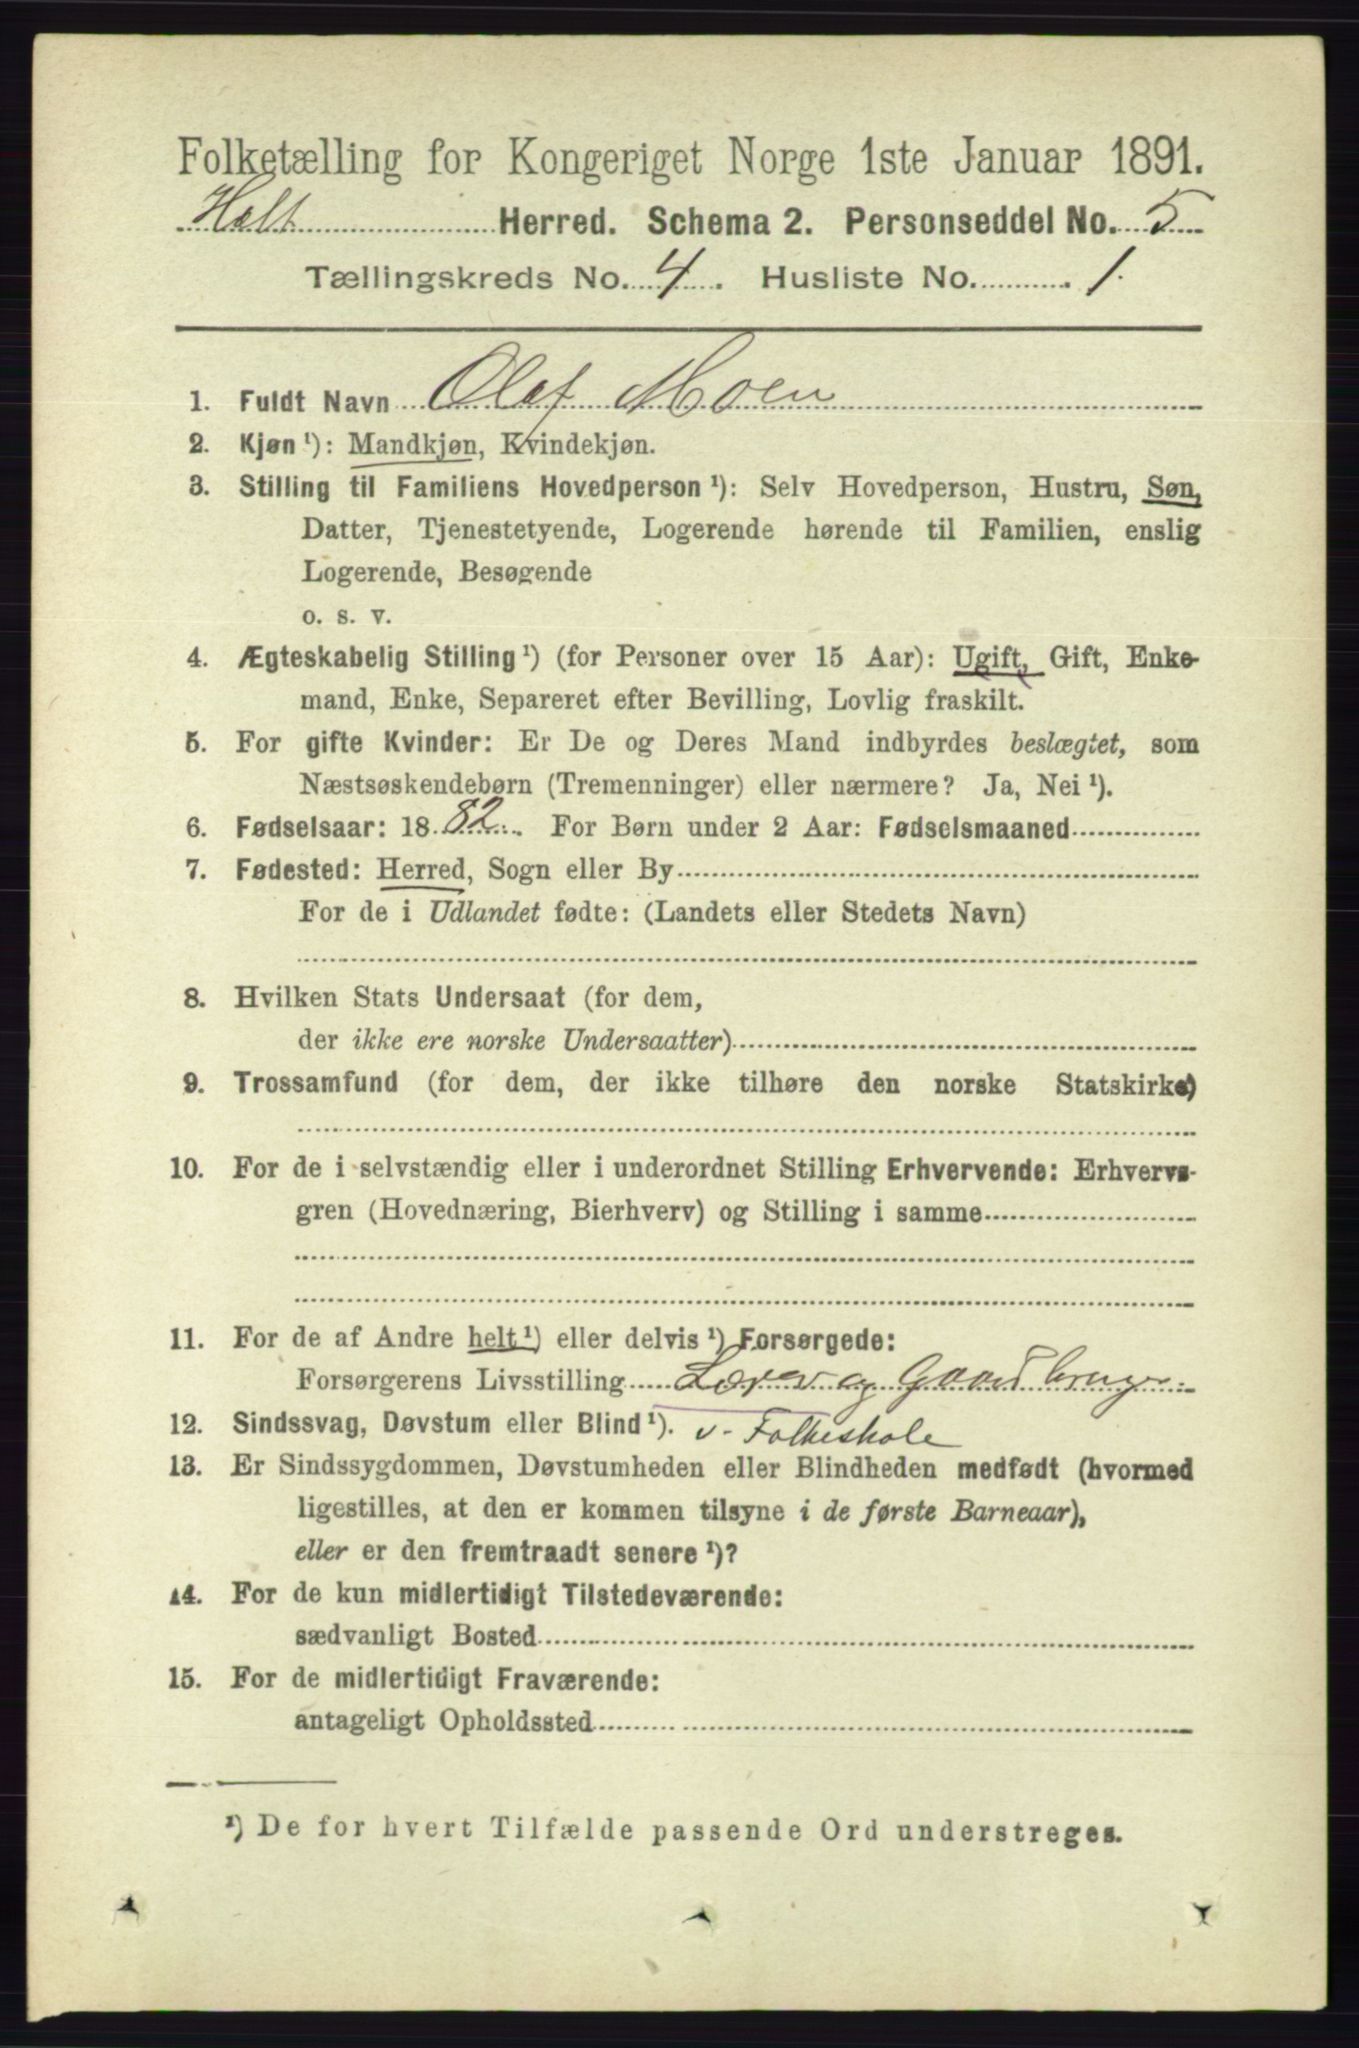 Folketælling for Kongeriget Norge 1ste Januar 1891.
Holt Herred. Schema 2. Personseddel No. 5
Tællingskreds No. 4. Husliste No. 1.
1. Fuldt Navn Olaf Moen
2. Kjøn ¹): Mandkjøn, Kvindekjøn.
3. Stilling til Familiens Hovedperson ¹): Selv Hovedperson, Hustru, Søn,
Datter, Tjenestetyende, Logerende hørende til Familien, enslig
Logerende, Besøgende
o. s. v.
4. Ægteskabelig Stilling ¹) (for Personer over 15 Aar): Ugift, Gift, Enke-
mand, Enke, Separeret efter Bevilling, Lovlig fraskilt.
5. For gifte Kvinder: Er De og Deres Mand indbyrdes beslægtet, som
Næstsøskendebørn (Tremenninger) eller nærmere? Ja, Nei ¹).
6. Fødselsaar: 1882. For Børn under 2 Aar: Fødselsmaaned
7. Fødested: Herred, Sogn eller By
For de i Udlandet fødte: (Landets eller Stedets Navn)
8. Hvilken Stats Undersaat (for dem,
der ikke ere norske Undersaatter)
9. Trossamfund (for dem, der ikke tilhøre den norske Statskirke)
10. For de i selvstændig eller i underordnet Stilling Erhvervende: Erhvervs-
gren (Hovednæring, Bierhverv) og Stilling i samme
11. For de af Andre helt ¹) eller delvis ¹) Forsørgede:
Forsørgerens Livsstilling Lærer og Gaardbruger
12. Sindssvag, Døvstum eller Blind ¹). v. Folkeskole
13. Er Sindssygdommen, Døvstumheden eller Blindheden medfødt (hvormed
ligestilles, at den er kommen tilsyne i de første Barneaar),
eller er den fremtraadt senere ¹)?
14. For de kun midlertidigt Tilstedeværende:
sædvanligt Bosted
15. For de midlertidigt Fraværende:
antageligt Opholdssted
¹) De for hvert Tilfælde passende Ord understreges.